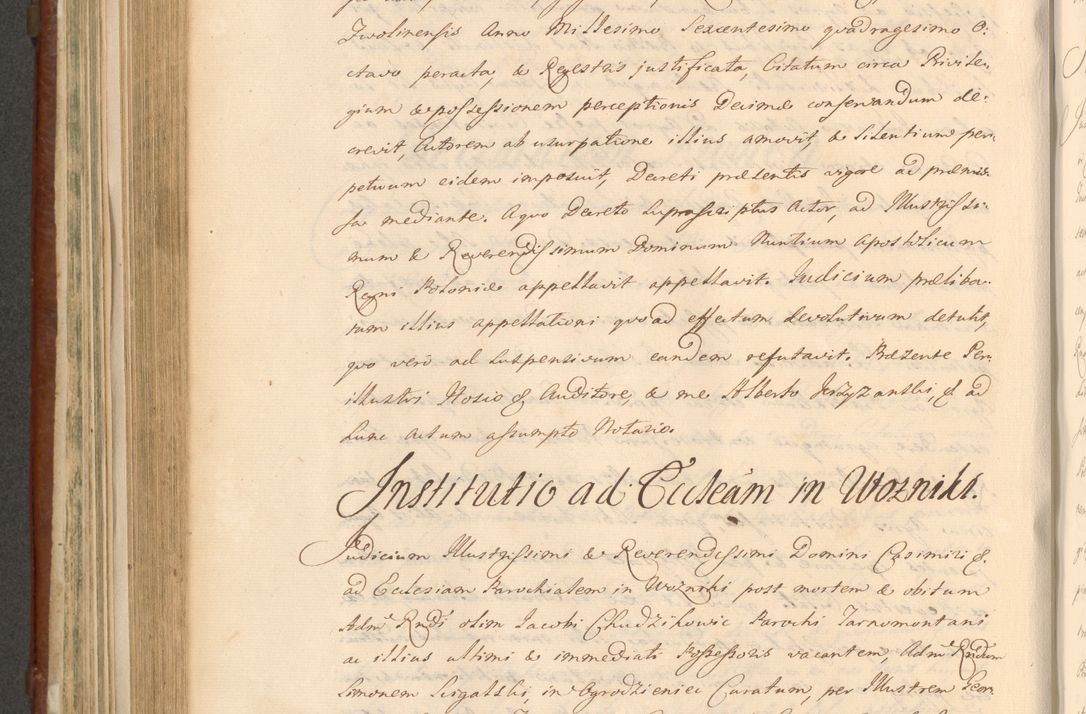 Zwolinensis Anno Millesimo Sexcentesimo quadragesimo O:
ctavo peracta, & Regestris justificata, Citatum circa Privile:
gium & possessionem perceptionis Decimæ conservandum de:
crevit, Actorem ab usurpatione illius amovit, & Silentium per:
petuum eidem imposuit, Decreti præsentis vigore ad præmis:
sa mediante. A quo Decreto suprascriptus Actor, ad Illustrissi:
mum & Reverendissimum Dominum Nuntium Apostolicum
Regni Poloniæ appellavit appellavit. Judicium præliba:
tum illius appellationi quoad effectum devolutivum detulit,
quo verò ad suspensivum eandem refutavit. Præsente Per:
illustri Hosio &. Auditore, & me Alberto & ad
hunc Actum assumpto Notario.
Institutio ad Eccleám in Wozniki.
Judicium Illustrissimi & Reverendissimi Domini Casimiri &.
ad Ecclesiam Parochialem in Wozniki post mortem & obitum
Admᵉ Rndi olim Jacobi Chudzikowic Parochi Tarnomontani
ac illius ultimi & immediati Possessoris vacantem, Admᵉ Rndum
Simonem Scigalski, in Ogrodzieniec Curatum, per Illustrem Geor: